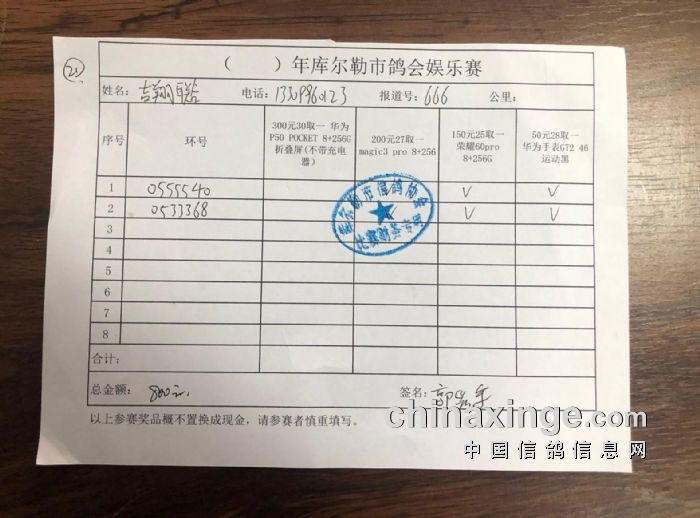 21
（ ）年库尔勒市鸽会娱乐赛
姓名： 吉翔联合 电话： 13709960123 报道号： 666 公里：
序号 环号 300元30取一 华为P50 POCKET 8+256G折叠屏(不带充电器) 200元27取一 magic3 pro 8+256 150元25取一 荣耀60pro 8+256G 50元28取一 华为手表GT2 46 运动黑
1 0555540 V V
2 0533368 V V
3
4
5
6
7
8
库尔勒市信鸽协会
比赛财务专用
合计：
总金额： 800元 签名：
以上参赛奖品概不置换成现金，请参赛者慎重填写。
chinaxinge.com
中国信鸽信息网